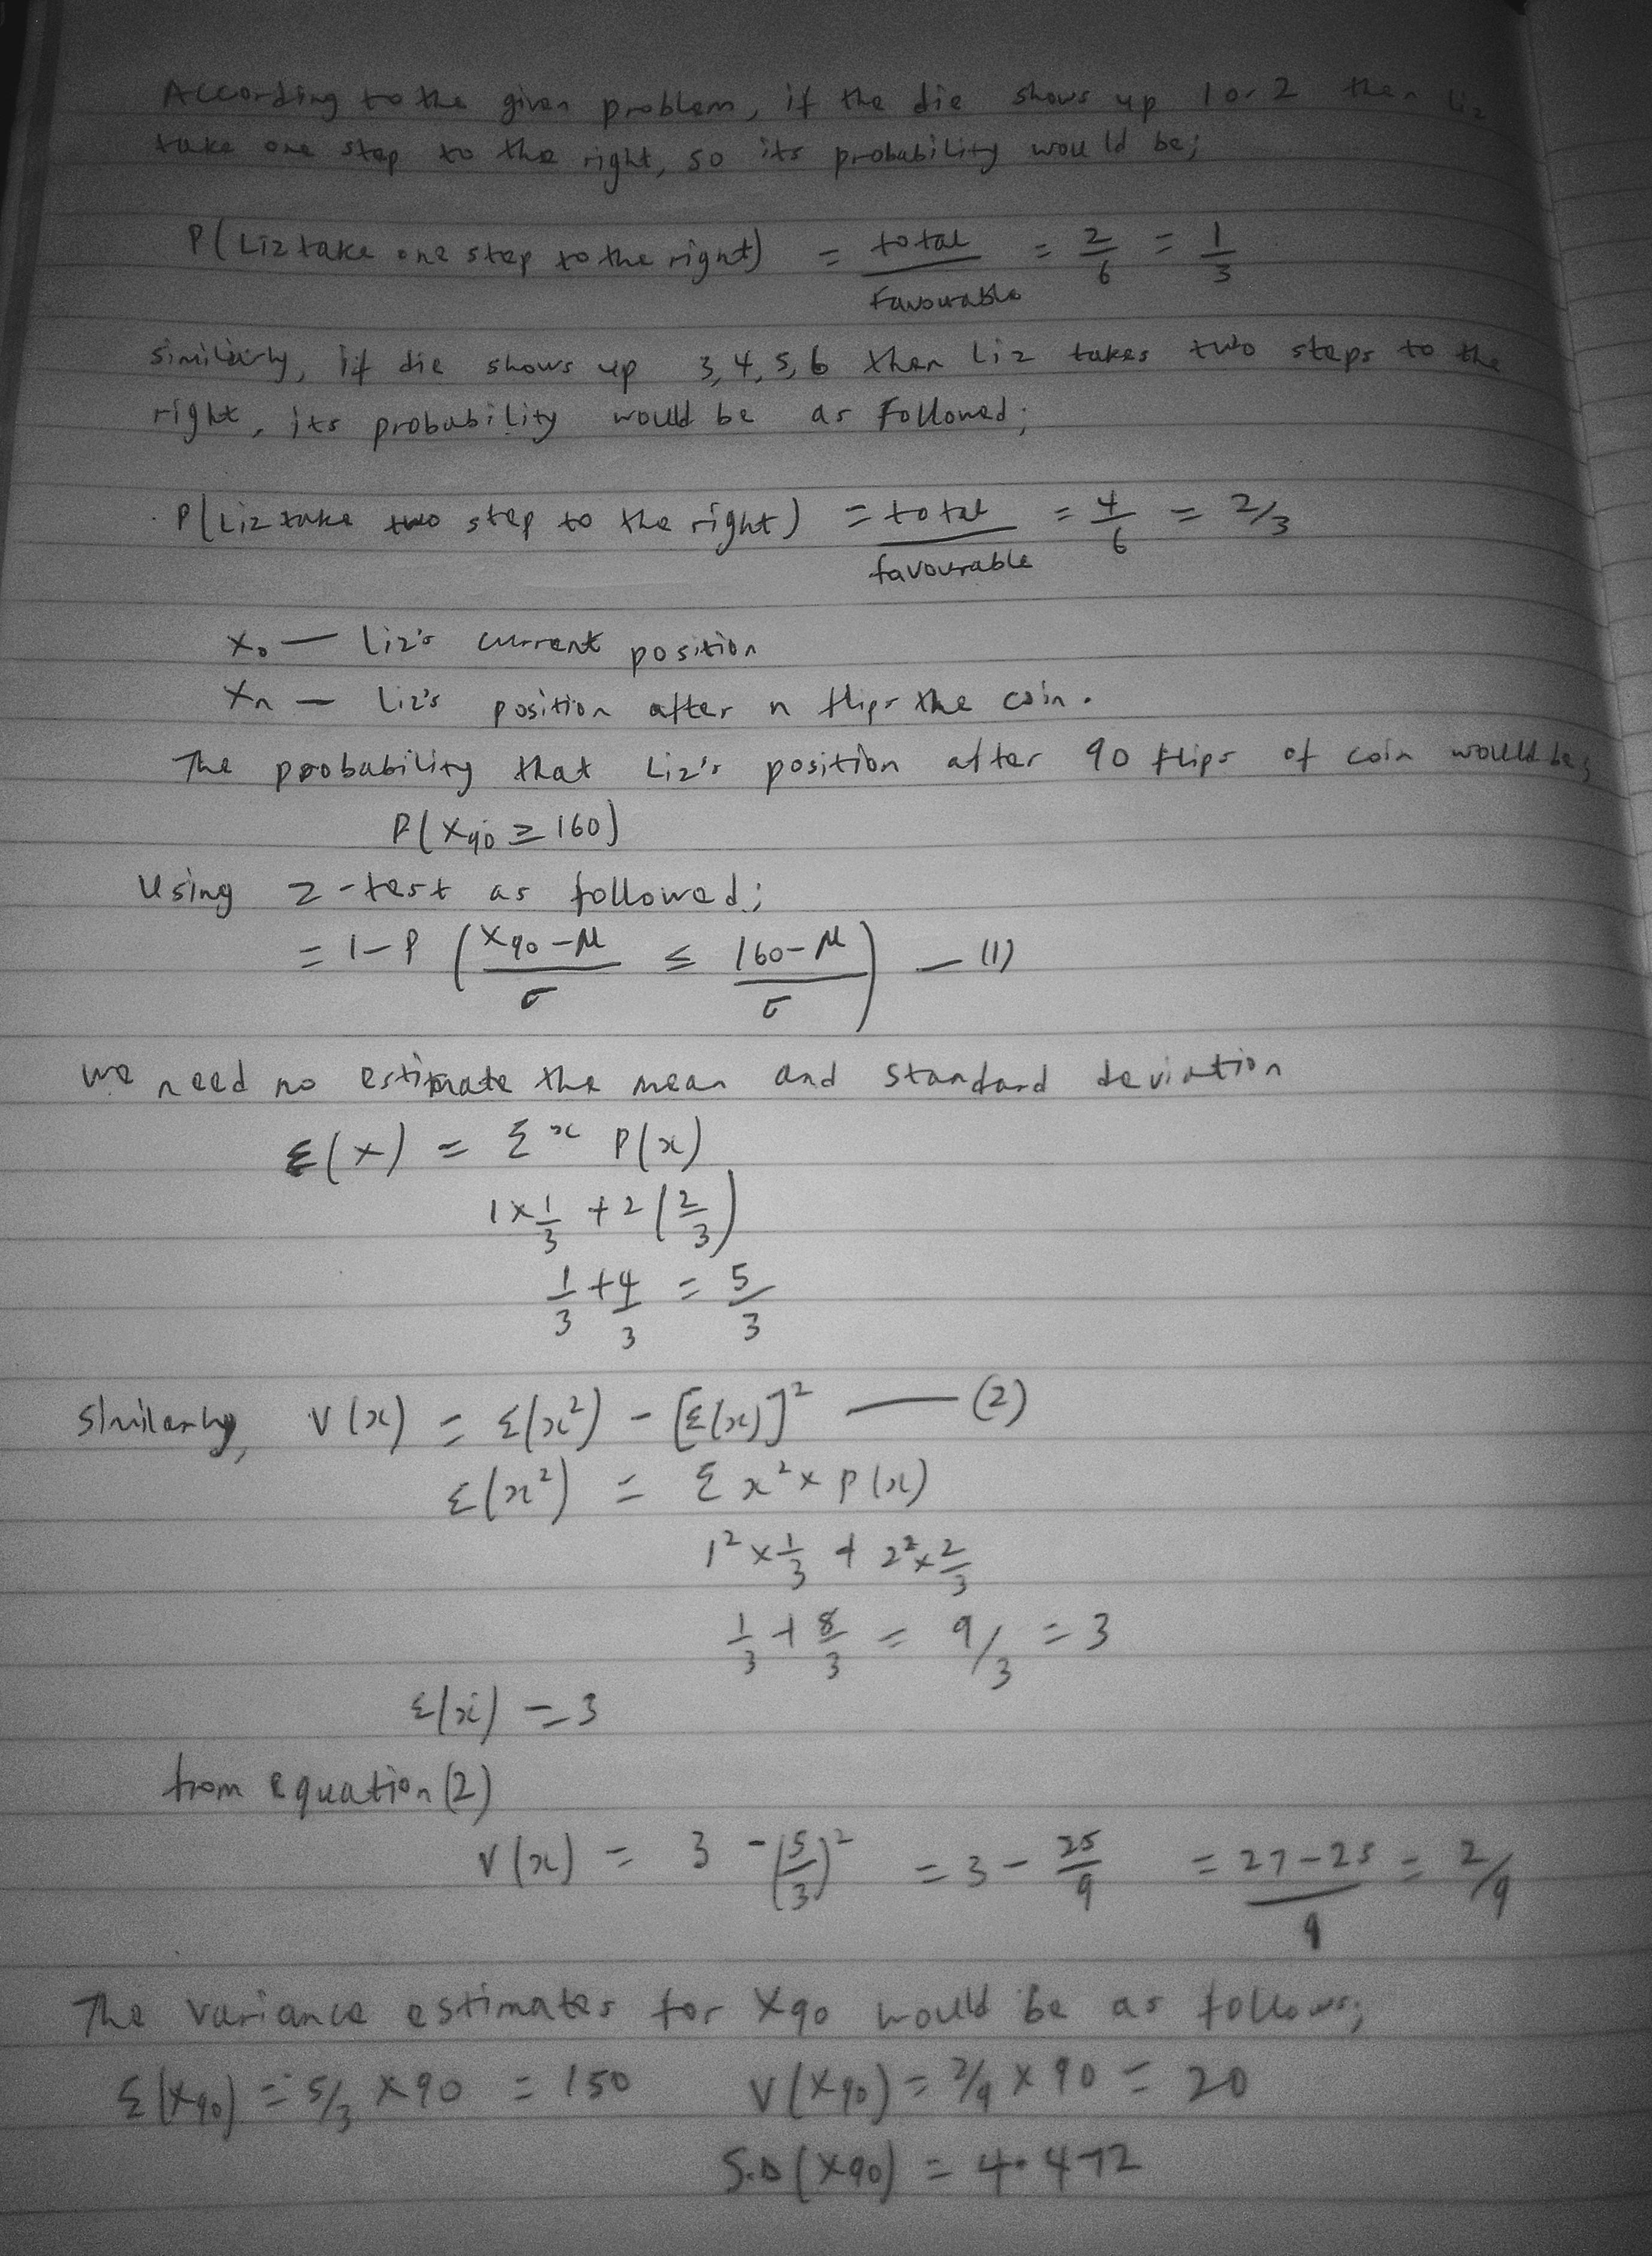 According to the given problem, if the die shows up 1 or 2 then Liz
take one step to the right, so its probability would be;
P(Liz take one step to the right) = total/Favourable = 2/6 = 1/3
similarly, if die shows up 3, 4, 5, 6 then Liz takes two steps to the
right, its probability would be as followed;
P(Liz take two step to the right) = total/favourable = 4/6 = 2/3
X₀ — Liz's current position
Xn — Liz's position after n flips the coin.
The probability that Liz's position after 90 flips of coin would be;
P(X₉₀ ≥ 160)
Using z-test as followed;
= 1-P (X₉₀-μ/σ ≤ 160-μ/σ) — (1)
we need no estimate the mean and standard deviation
E(x) = Σx P(x)
1×1/3 + 2(2/3)
1/3 + 4/3 = 5/3
Similarly, V(x) = E(x²) - [E(x)]² — (2)
E(x²) = Σx² × P(x)
1² × 1/3 + 2² × 2/3
1/3 + 8/3 = 9/3 = 3
E(x²) = 3
from equation (2)
V(x) = 3 - (5/3)² = 3 - 25/9 = 27-25/9 = 2/9
The variance estimates for X₉₀ would be as follows;
E(X₉₀) = 5/3 × 90 = 150 V(X₉₀) = 2/9 × 90 = 20
S.D(X₉₀) = 4.472